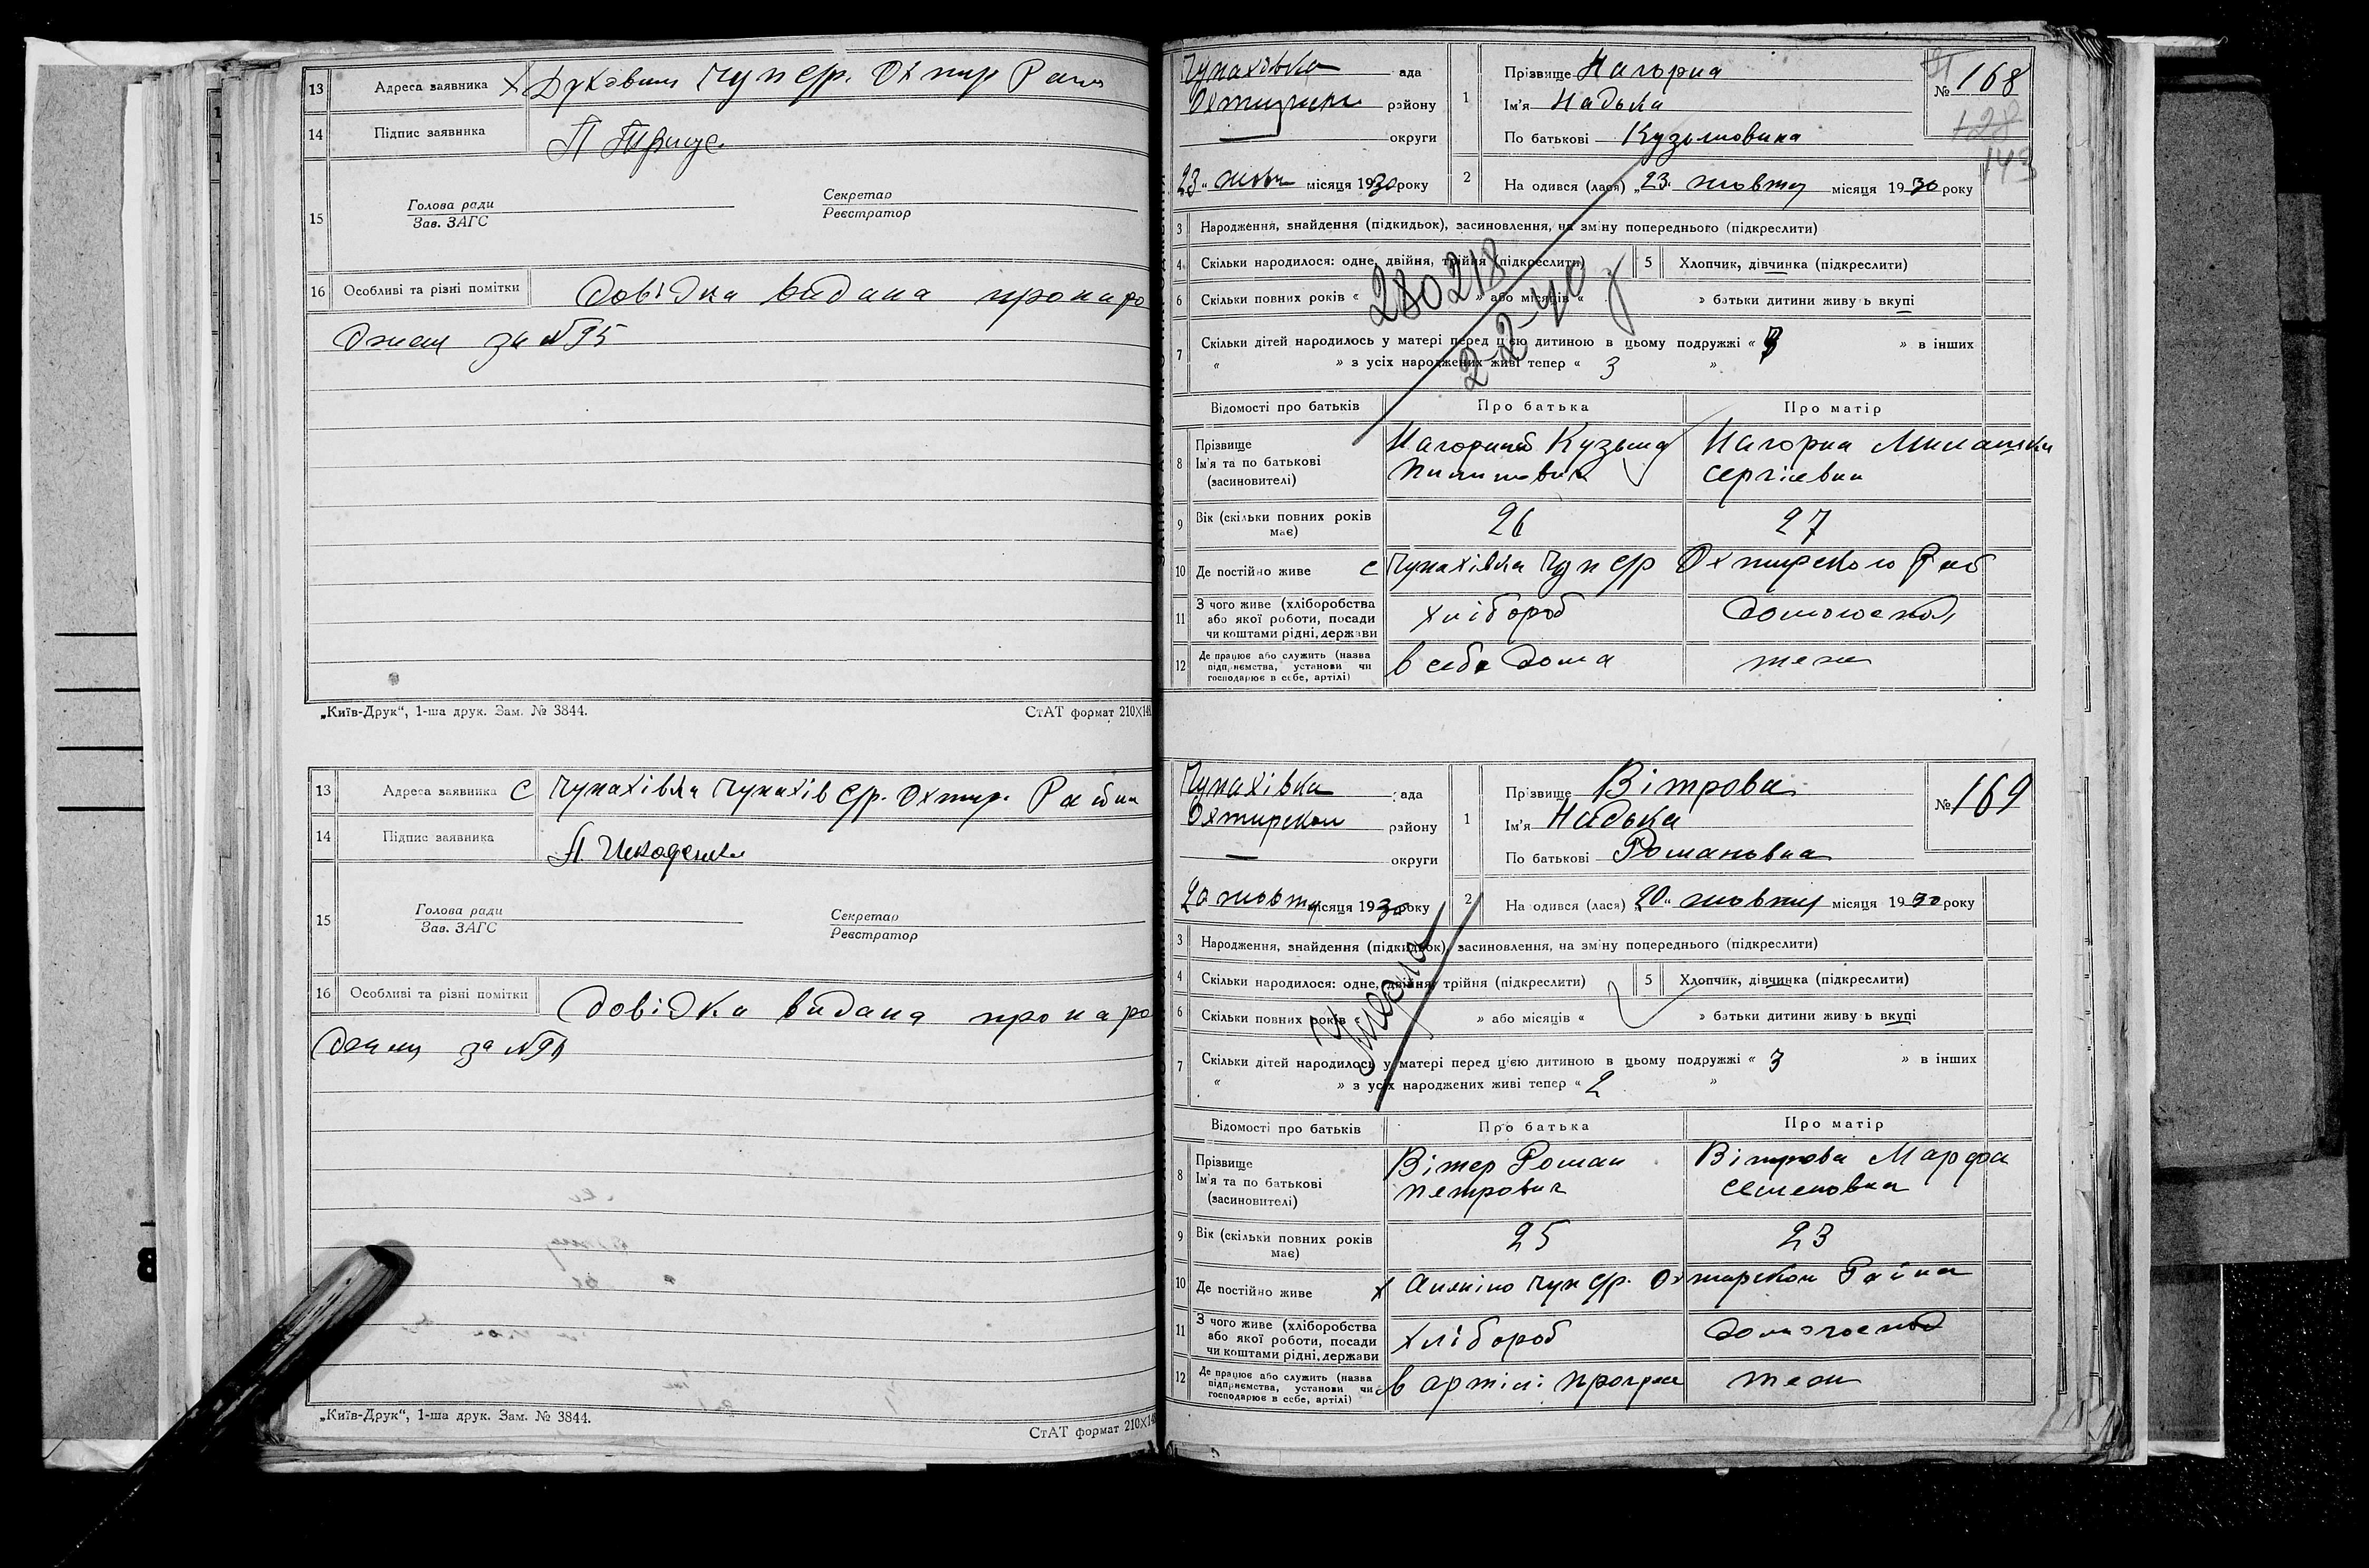 13 Адреса заявника
14 Підпис заявника
15 Голова ради
Зав. ЗАГС
Секретар
Реєстратор
16 Особливі та різні помітки довідка видана про наро
„Київ-Друк“, 1-ша друк. Зам. № 3844.
СтАТ формат 210X148
13 Адреса заявника с Чупахівка Чупахів с/р. Охтир. Району
14 Підпис заявника
15 Голова ради
Зав. ЗАГС
Секретар
Реєстратор
16 Особливі та різні помітки довідка видана про наро
„Київ-Друк“, 1-ша друк. Зам. № 3844.
СтАТ формат 210X148
Чупахівка ада
району
округи
1 Прізвище Нагорна
Ім'я Надька
По батькові Кузьмовна
№ 168
143
23 жовт місяця 1930 року
2 На одився (лася) „23“ жовтня місяця 1930 року
3 Народження, знайдення (підкидьок), засиновлення, на зміну попереднього (підкреслити)
4 Скільки народилося: одне, двійня, трійня (підкреслити) 5 Хлопчик, дівчинка (підкреслити)
6 Скільки повних років « » або місяців « » батьки дитини живуть вкупі
280218
2-2-40
7 Скільки дітей народилось у матері перед цією дитиною в цьому подружжі « 3 » в інших
« » з усіх народжених живі тепер « 3 »
Відомості про батьків Про батька Про матір
8 Прізвище
Ім'я та по батькові
(засиновителі)
Нагорний Кузьма
Пилипович
Нагорна Милашка
Сергіевна
9 Вік (скільки повних років
має) 26 27
10 Де постійно живе с Чупахівка Чуп с/р Охтирского Рай
11 З чого живе (хліборобства
або якої роботи, посади
чи коштами рідні, держави
хлібороб домогоспод
12 Де працює або служить (назва
підприємства, установи чи
господарює в себе, артілі)
в себе дома теж
Чупахівка ада
Охтирском району
округи
1 Прізвище Вітрова
Ім'я Надька
По батькові Романовна
№ 169
20 жовтня місяця 1930 року
2 На одився (лася) „20“ жовтня місяця 1930 року
3 Народження, знайдення (підкидьок), засиновлення, на зміну попереднього (підкреслити)
4 Скільки народилося: одне, двійня, трійня (підкреслити) 5 Хлопчик, дівчинка (підкреслити)
6 Скільки повних років « » або місяців « » батьки дитини живуть вкупі
Умерла
7 Скільки дітей народилось у матері перед цією дитиною в цьому подружжі « 3 » в інших
« » з усіх народжених живі тепер « 2 »
Відомості про батьків Про батька Про матір
8 Прізвище
Ім'я та по батькові
(засиновителі)
Вітер Роман
Петрович
Вітрова Марфа
Семеновна
9 Вік (скільки повних років
має) 25 23
10 Де постійно живе х Чуп с/р. Охтирском Району
11 З чого живе (хліборобства
або якої роботи, посади
чи коштами рідні, держави
хлібороб домогоспод
12 Де працює або служить (назва
підприємства, установи чи
господарює в себе, артілі)
в артілі Прогрес теж